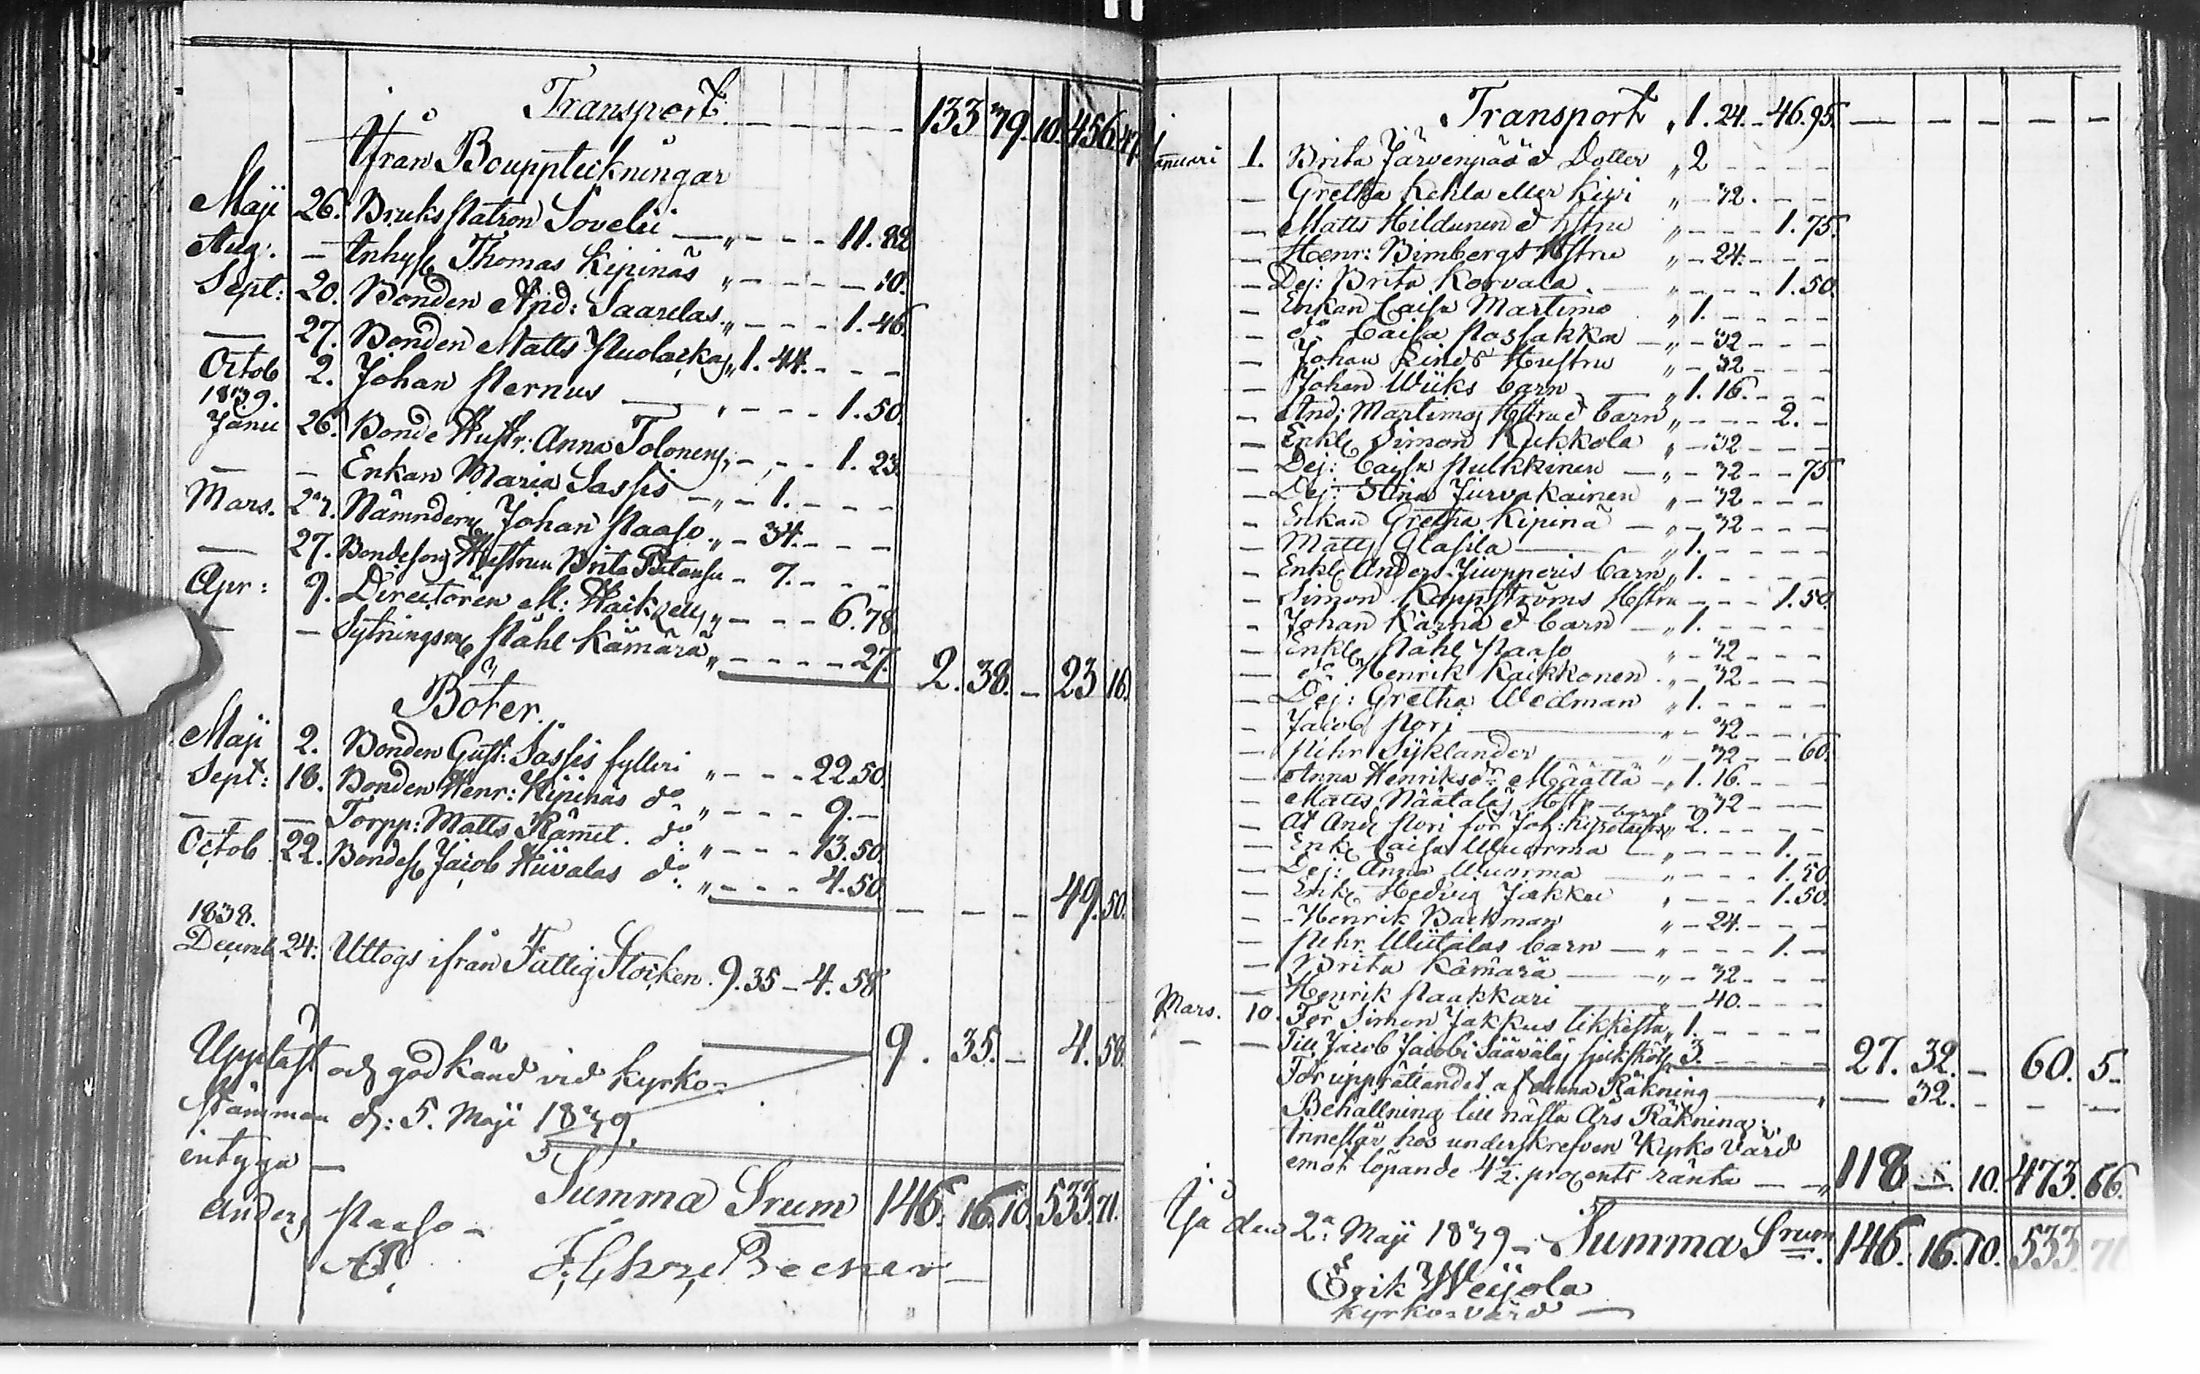 Transport. — — — — — 133 39. 10. 456. 47
Ifrån Bouppteckningar
Maji 26. Bruks Patron Sovelii — „ - - - 11. 82
Aug: — Inhyse Thomas Kipinäs „ - - - - 10.
Sept: 20. Bonden And: Saarelas „ - - - 1. 46
— 27. Bonden Matts Puolacka „ 1. 44. - - -
Octob 2. Johan Pernus — „ - - - 1. 50.
1839.
Janu 26. Bonde Hustr: Anna Tolonens „ - - - 1. 23.
— — Enkan Maria Sassis — „ - 1. - - -
Mars. 27. Nämndem Johan Paaso „ - 34. - - -
— 27. Bondesons Hustrun Brita - 7. - - -
Apr: 9. Directoren M: „ - - - 6. 78.
— — Sytningsm Påhl Kämärä „ - - - - 27. 2. 38. — 23 16.
Böter.
Maji 2. Bonden Gust: Sassis fylleri „ - - - 22. 50.
Sept: 18. Bonden Henr: Kipinäs do „ - - - 9. —
— — Torpp: Matts Kämet. do: „ - - - 13. 50.
Octob 22. Bondes Jacob Hiivalas do: „ - - - 4. 50. — — — 49. 50.
1838.
Decemb. 24. Uttogs ifrån Fattig Stocken. 9. 35 — 4. 58
9. 35. — 4. 58.
Uppläst och godkänd vid Kyrko-
stämman d: 5. Maji 1839,
intyga —
Summa Srum 146. 16. 10. 533. 71.
Anders Paaso —
Transport „ 1. 24. — 46. 95. — — — — —
Januari 1. Brita Järvenpää & Dotter „ 2 - - - -
— Gretha Kehla eller Kiwi „ - 32. - - -
— Matts Hildunen & Hstru „ - - - 1. 75.
— Henr: Bimbergs Hstru „ - 24. - - -
— Dej: Brita Korvala. „ - - - 1. 50.
— Enkan Caisa Martimo „ 1. - - - -
— do Caisa Posfakka — „ - 32 - - -
— Johan Linds Hustru „ - 32 - - -
— Johan Wiiks barn — „ 1. 16. - - -
— And: Martimos Hstru & barn „ - - - 2. -
— Enkl Simon Kukkola „ - 32 - - -
— Dej: Caisa Pulkkinen — „ - 32 - - 75.
— Dej: Stina Jurvakainen „ - 32 - - -
— Enkan Gretha Kipinä — „ - 32 - - -
— Matts Glasila — „ 1. - - - -
— Enkl Anders Juopperis barn „ 1. - - - -
— Simon Koppströms Hstru - - - 1. 50.
— Johan Kärnä & barn — „ 1. - - - -
— Enkl Påhl Paaso „ - 32 - - -
— do Henrik Kaikkonen. „ - 32 - - -
— Dej: Gretha Wedman „ 1. - - - -
— Jacob Pori — „ - 32 - - -
— Pehr Syklander — „ - 32 - - 60.
— Anna Henriksdr Määttä — „ 1. 16. - - -
— Matts Näätäläs Hst — „ - 32 - - -
— At And Pori för Joh: barn „ 2. - - - -
— Enk Caisa Wuorma — „ - - - 1. -
— Dej: Anna Wuorma — „ - - - 1. 50.
— Enk Hedvig Jakku „ - - - 1. 50.
— Henrik Backman „ - 24. - - -
— Pehr Wiitalas barn — „ - - - 1. —
— Brita Kämärä — „ - 32 - - -
— Henrik Paakkari „ - 40. - - -
Mars. 10. För Simon Jakkus likkista „ 1. - - - -
— — Till Jacob Jacobi Säävälä 3. - - - - 27. 32. — 60. 5.
För upprättandet af denna Räkning — „ — 32. — — —
Behållning till nästa Års Räkning,
inneslår hos underskrefven Kyrko Värd
emot löpande 4½ procents ränta — „ 118 — 10. 473. 66.
Ijo den 2a: Maji 1839 — Summa Srum 146. 16. 10. 533. 71
Erik Weijola
kyrko-värd —